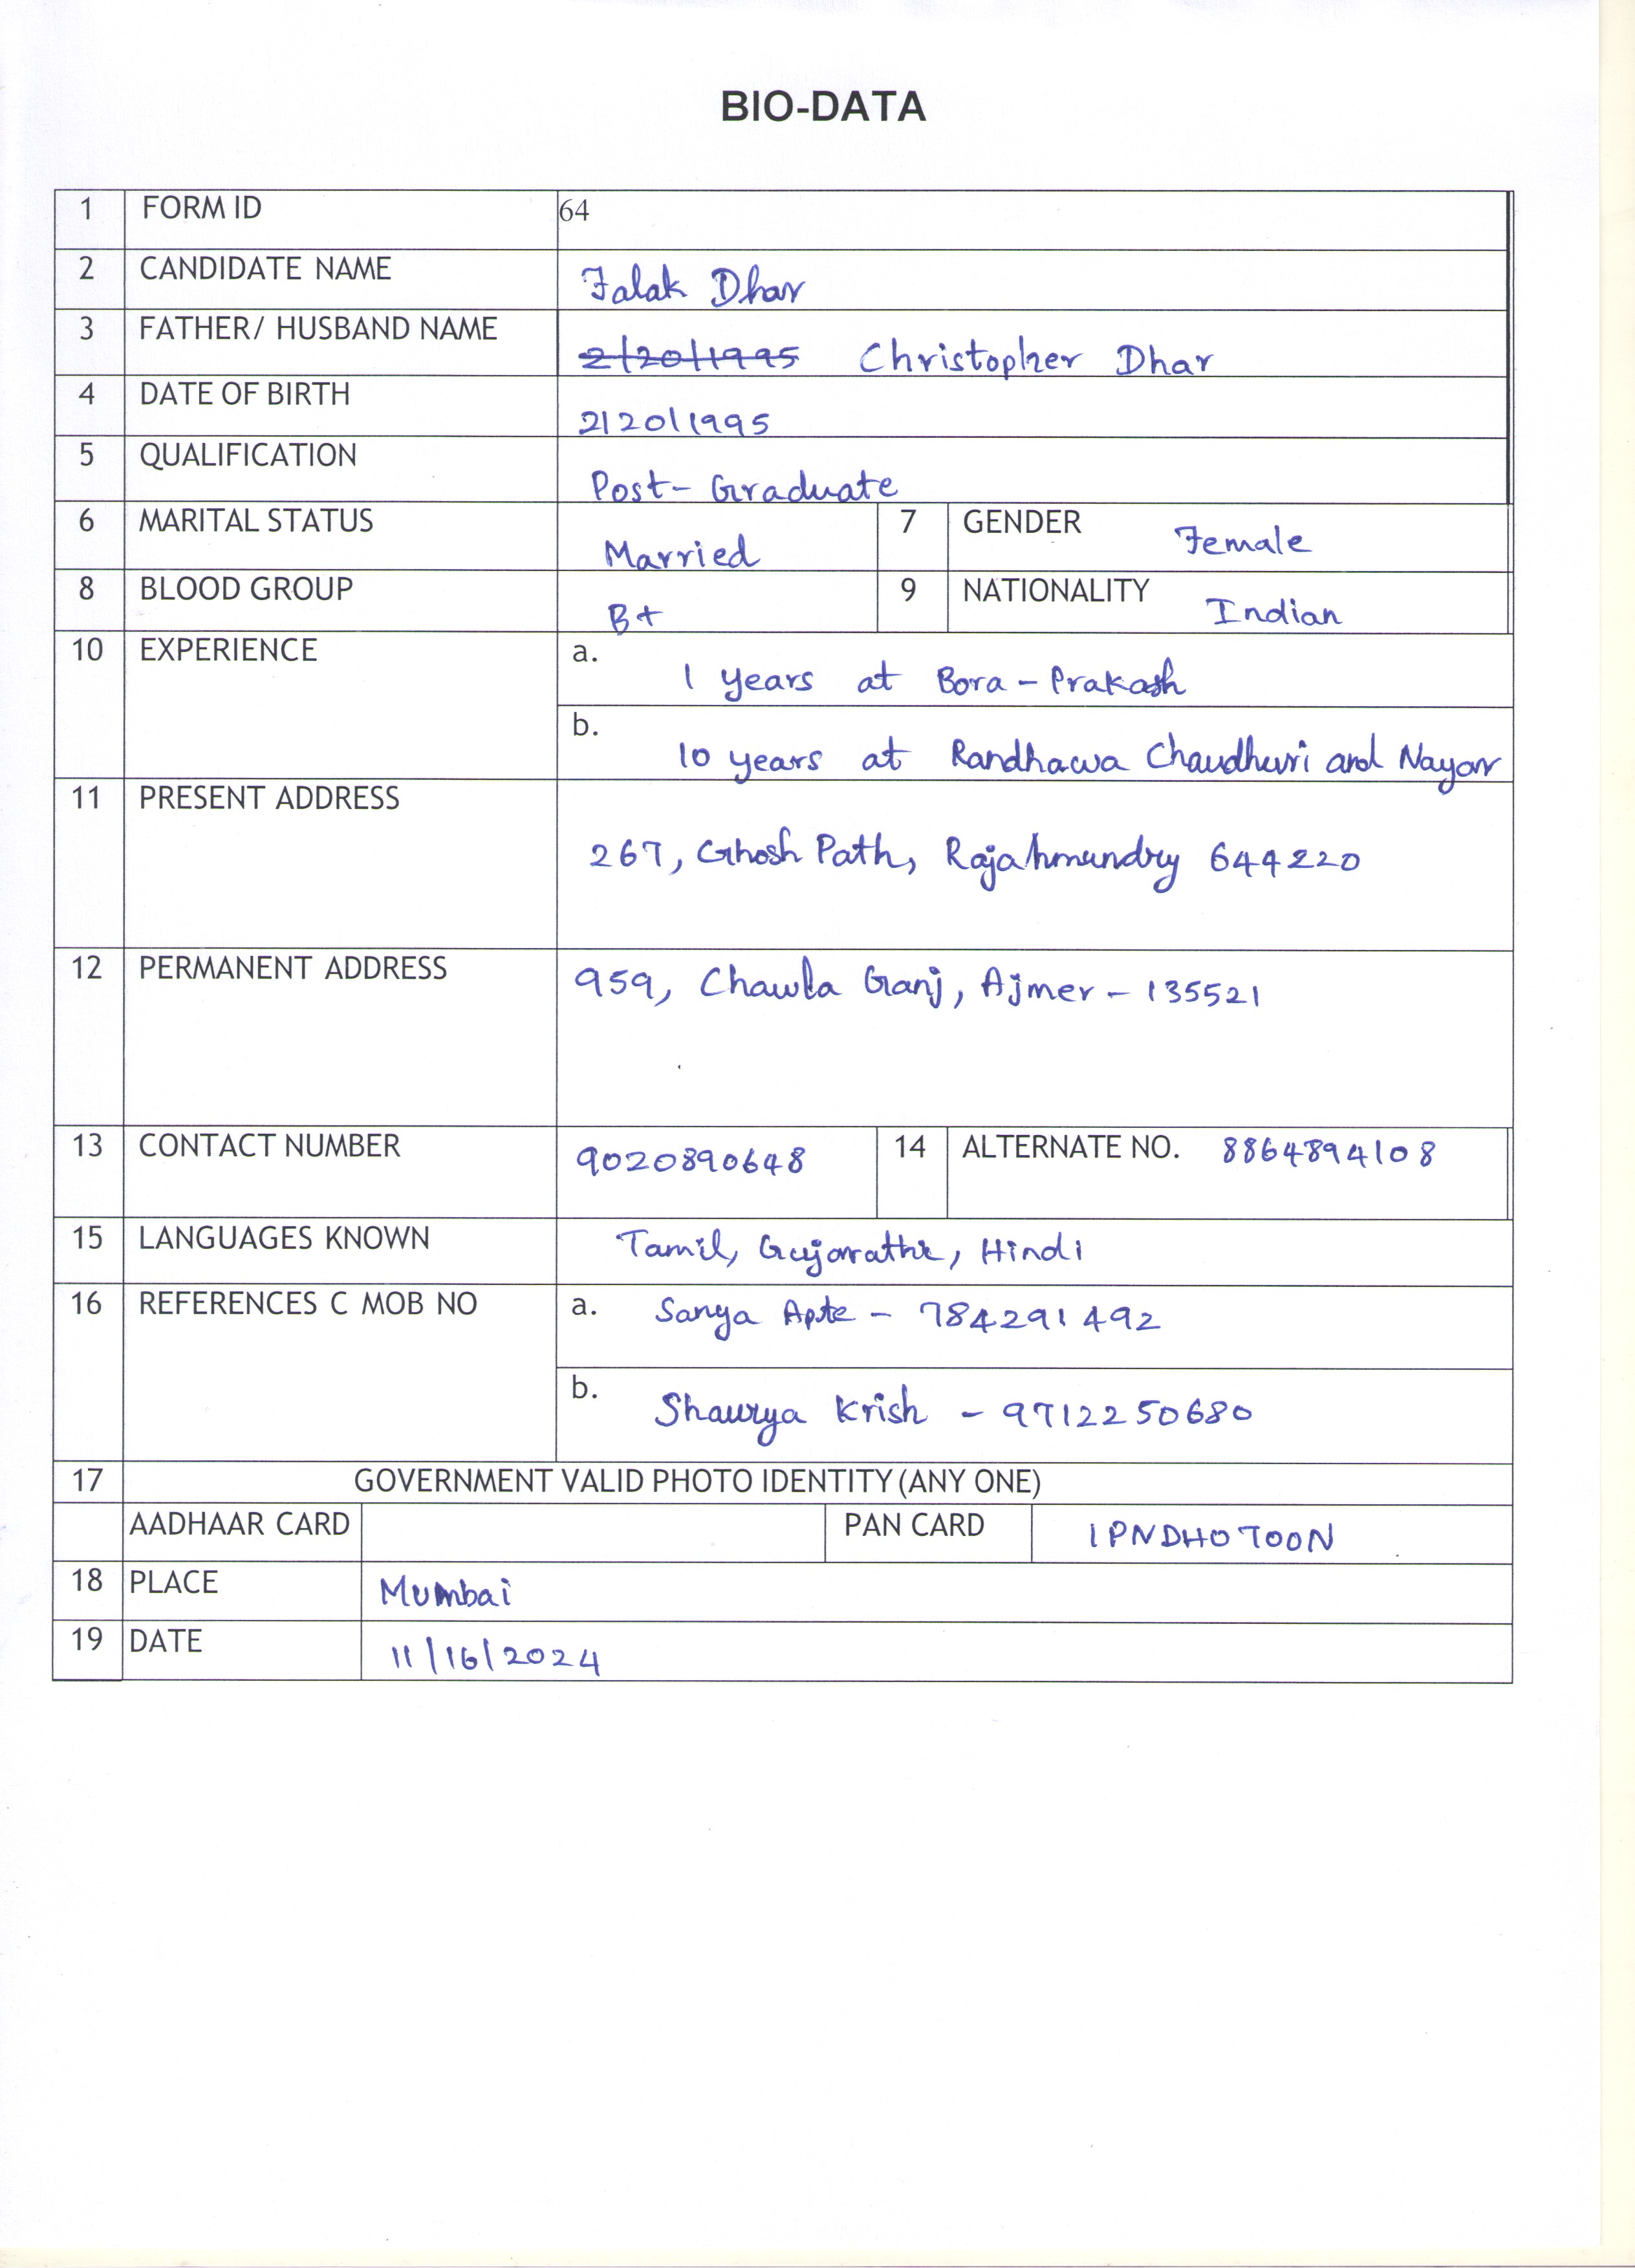 BIO-DATA
1 FORM ID 64
2 CANDIDATE NAME Falak Dhar
3 FATHER/ HUSBAND NAME 2/20/1995 Christopher Dhar
4 DATE OF BIRTH 2/20/1995
5 QUALIFICATION Post-Graduate
6 MARITAL STATUS Married 7 GENDER Female
8 BLOOD GROUP B+ 9 NATIONALITY Indian
10 EXPERIENCE a. 1 years at Bora-Prakash
b. 10 years at Randhawa Chaudhuri and Nayar
11 PRESENT ADDRESS
267, Ghosh Path, Rajahmundry 644220
12 PERMANENT ADDRESS 959, Chawla Ganj, Ajmer-135521
13 CONTACT NUMBER 9020890648 14 ALTERNATE NO. 8864894108
15 LANGUAGES KNOWN Tamil, Gujarathi, Hindi
16 REFERENCES C MOB NO a. Sanya Apte - 784291492
b. Shaurya Krish - 9712250680
17 GOVERNMENT VALID PHOTO IDENTITY (ANY ONE)
AADHAAR CARD PAN CARD IPNDH0700N
18 PLACE Mumbai
19 DATE 11/16/2024